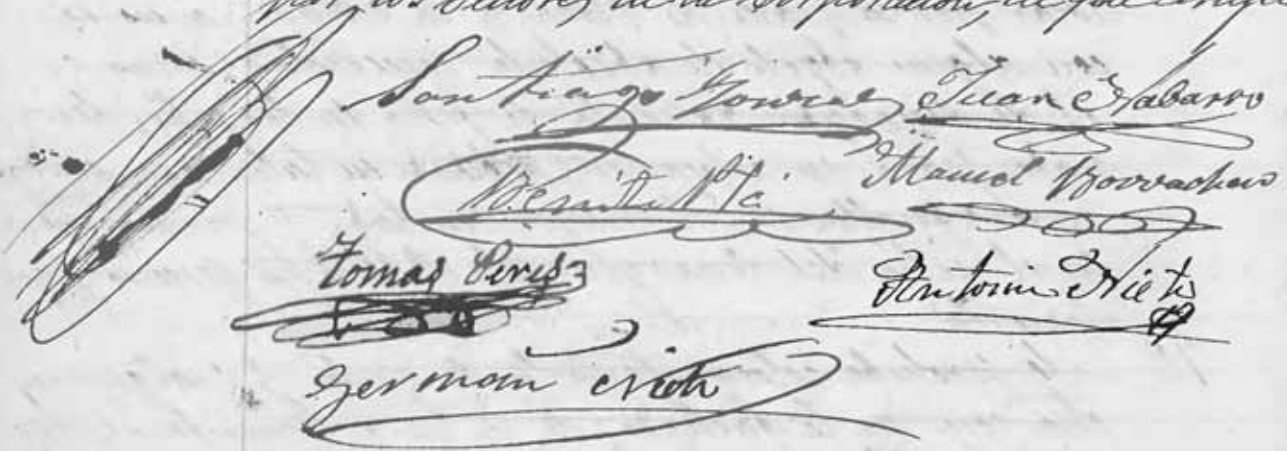 por los Señores de la Corporación, de que certifico
Santiago Gonzalez Juan Nabarro
Benito Manuel Borrachero
Tomas Peres Antonio Nieto
German Nieto